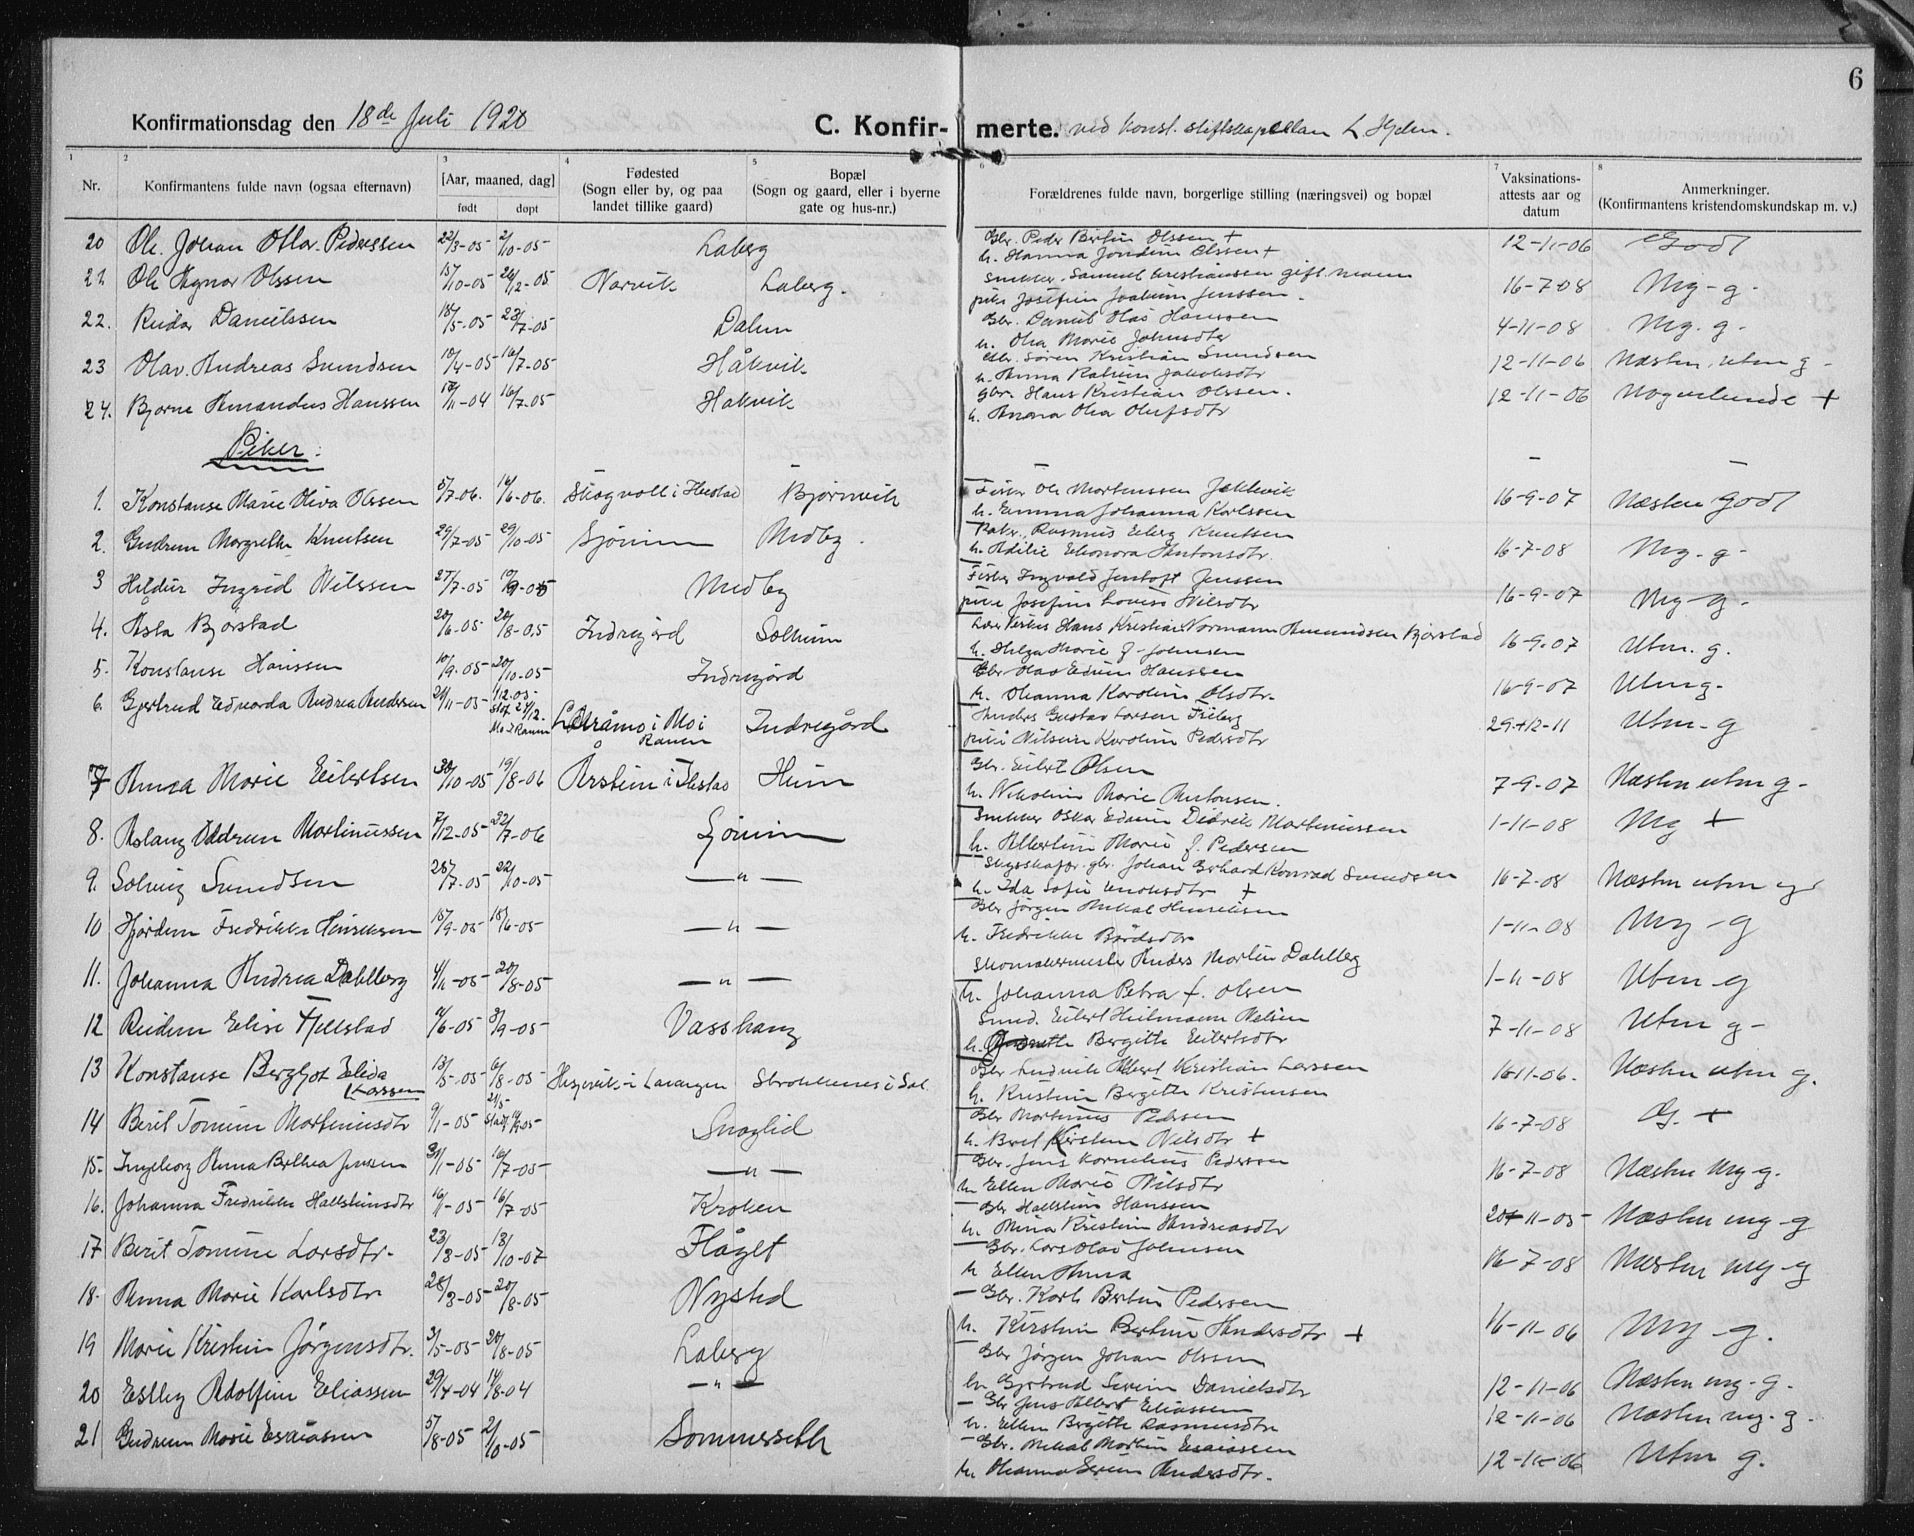 6
Konfirmationsdag den 18de Juli 1920 C. Konfir- merte. ved konst. stiftskapellan L Hjelm.
1 2 3 4 5 6 7 8
Nr. Konfirmantens fulde navn (ogsaa efternavn) [Aar, maaned, dag] født døpt Fødested (Sogn eller by, og paa landet tillike gaard) Bopæl (Sogn og gaard, eller i byerne gate og hus-nr.) Forældrenes fulde navn, borgerlige stilling (næringsvei) og bopæl Vaksinations-attests aar og datum Anmerkninger. (Konfirmantens kristendomskundskap m. v.)
20 Ole Johan Ottar Pederssen 22/3-05 2/10-05 Laberg Gbr. Peder Bertin Olssen + 12-11-06 Godt
h. Hanna Jondine Olssen +
21. Ole Agnar Olssen 15/10-05 26/12-05 Narvik Laberg. Snekker Samuel Kristianssen gift mann 16-7-08 Mg-g-
pike Josefine Joakime Jenssen.
22. Reidar Danielssen 18/5-05 23/7-05 Dalen Gbr. Daniel Olao Hanssen 4-11-08 Mg. g-
h. Olia Marie Johnsdtr
23 Olav Andreas Svendsen 10/4-05 16/7-05 Håkvik Gbr. Søren Kristian Svendsen 12-11-06 Næsten utm g-
h. Anna Katrine Jakobsdtr
24. Bjarne Amandus Hanssen /11-04 16/7-05 Håkvik Gbr. Hans Kristian Olssen. 12-11-06 Nogenlunde +
h. Anna Olea Olufsdtr
Piker:
1. Konstanse Marie Oliva Olssen 5/7-06. 16/6-06. Skogvoll i Ibestad Bjørnvik Fisker Ole Mortenssen Jektevik 16-9-07 Næsten godt
h. Emma Johanna Karlssen
2. Gudrun Margrethe Knutsen 29/7-05 29/10-05 Sjøveien Medby. Rasmus Eiberg Knutsen 16-7-08 Mg-g-
h. Adilie Elonora Antonsdtr.
3 Hildur Ingrid Nilssen 27/7-05 10/9-05 Medby Fisker Ingvald Jentoft Jenssen 16-9-07 Mg-g-
pike Josefine Lovise Nilsdtr
4. Åsta Bjørstad 20/6-05 20/8-05 Indregård Solheim Hans Kristian Normann Amundsen Bjørstad 16-9-07 Utm. g.
h. Helga Marie f. Johnsen
5. Konstanse Hanssen 10/9-05 20/10-05 Indregård Gbr Olao Edvin Hanssen 16-9-07 Utm g-
h. Ohanna Karoline Olsdtr.
6. Gjertrud Edvarda Andrea Andersen 21/11-05 1/12 05. Stad 24/12 Mo i Ranen Langråmo i Mo i Ranen Indregård Anders Gustav Larsen Friberg 29-12-11 Utm-g
pike Nilsine Karoline Pedersdtr
7 Anna Marie Eilertsen 30/10-05 19/8-06 Årstein i Ibestad Heim Gbr. Eilert Olsen 7-9-07 Næsten utm g-
h. Nikoline Marie Antonsen.
8. Aslaug Oddrun Martinussen 7/12-05 22/7-06 Sjøveien Snekker Oskar Edvin Didrik Martinussen 1-11-08 Mg +
h. Albertine Marie f. Pedersen
9. Solveig Svendsen 28/7-05 22/10-05 — " — Skysskafer. gbr. Johan Gerhard Konrad Svendsen 16-7-08 Næsten utm g
h. Ida Sofie Enoksdtr +
10 Hjørdis Fredrikke Henriksen 15/9-05 18/6-05 — " — Gbr Jørgen Mikal Henriksen 1-11-08 Mg-g
h. Fredrikke Bårdsdtr
11. Johanna Andrea Dahlberg 4/11-05 20/8-05 — " — Skomakermester Anders Martin Dahlberg 1-11-08 Utm-g
h. Johanna Petra f. Olsen
12 Reidun Elise Fjellstad /6-05 3/9-05 Vasshaug Smed. Eilert Heilmann Nelsen 7-11-08 Utm g-
h. Bergitte Eilertsdtr
13 Konstanse Bergljot Elida Larssen 13/5-05 6/8-05 Hesjevik i Lavangen Strokkenes i Sal. Gbr Ludvik Albert Kristian Larssen 16-11-06. Næsten utm g.
h. Kristine Bergitte Kristensen
14 Berit Tomine Martinusdtr 9/1-05 21/5 Stadf. 16/7-05 Snoglid Gbr Martinus Pedersen 16-7-08 G. +
h. Berit Kirstine Nilsdtr +
15. Ingeborg Anna Bethea Jenssen 31/1-05 16/7-05 — " — Gbr. Jens Kornelius Pedersen 16-7-08 Næsten Mg-g.
h. Ellen Marie Nilsdtr
16. Johanna Fredrikke Hallsteinsdtr 16/1-05 16/7-05 Kroken Gbr Hallstein Hanssen 20-11-05 Næsten mg-g
h. Anna Kristine Andreasdtr
17 Berit Tomine Larsdtr. 23/3-05 13/10-07 Flåget Gbr. Lars Olao Johnsen 16-7-08 Næsten mg-g
h Ellen Anna
18. Anna Marie Karlsdtr 28/3-05 20/8-05 Nysted Gbr. Karl Bertin Pedersen 16-11-06 Mg-g.
h. Kirstine Bertine Andersdtr +
19 Marie Kristine Jørgensdtr. 3/5-05 20/8-05 Laberg Gbr Jørgen Johan Olssen 12-11-06 Næsten mg-g.
h. Gjertrud Serine Danielsdtr
20 Esther Adolfine Eliassen 29/4-04 14/8-04 — " — Gbr Jens Albert Eliassen 12-11-06 Næsten mg-g.
h. Ellen Bergitte Rasmusdtr
21 Gudrun Marie Esaiassen 5/8-05 2/10-05 Sommerseth Gbr. Mikal Martin Esaiassen 12-11-06 Utm g.
h. Ohanna Serine Andersdtr.